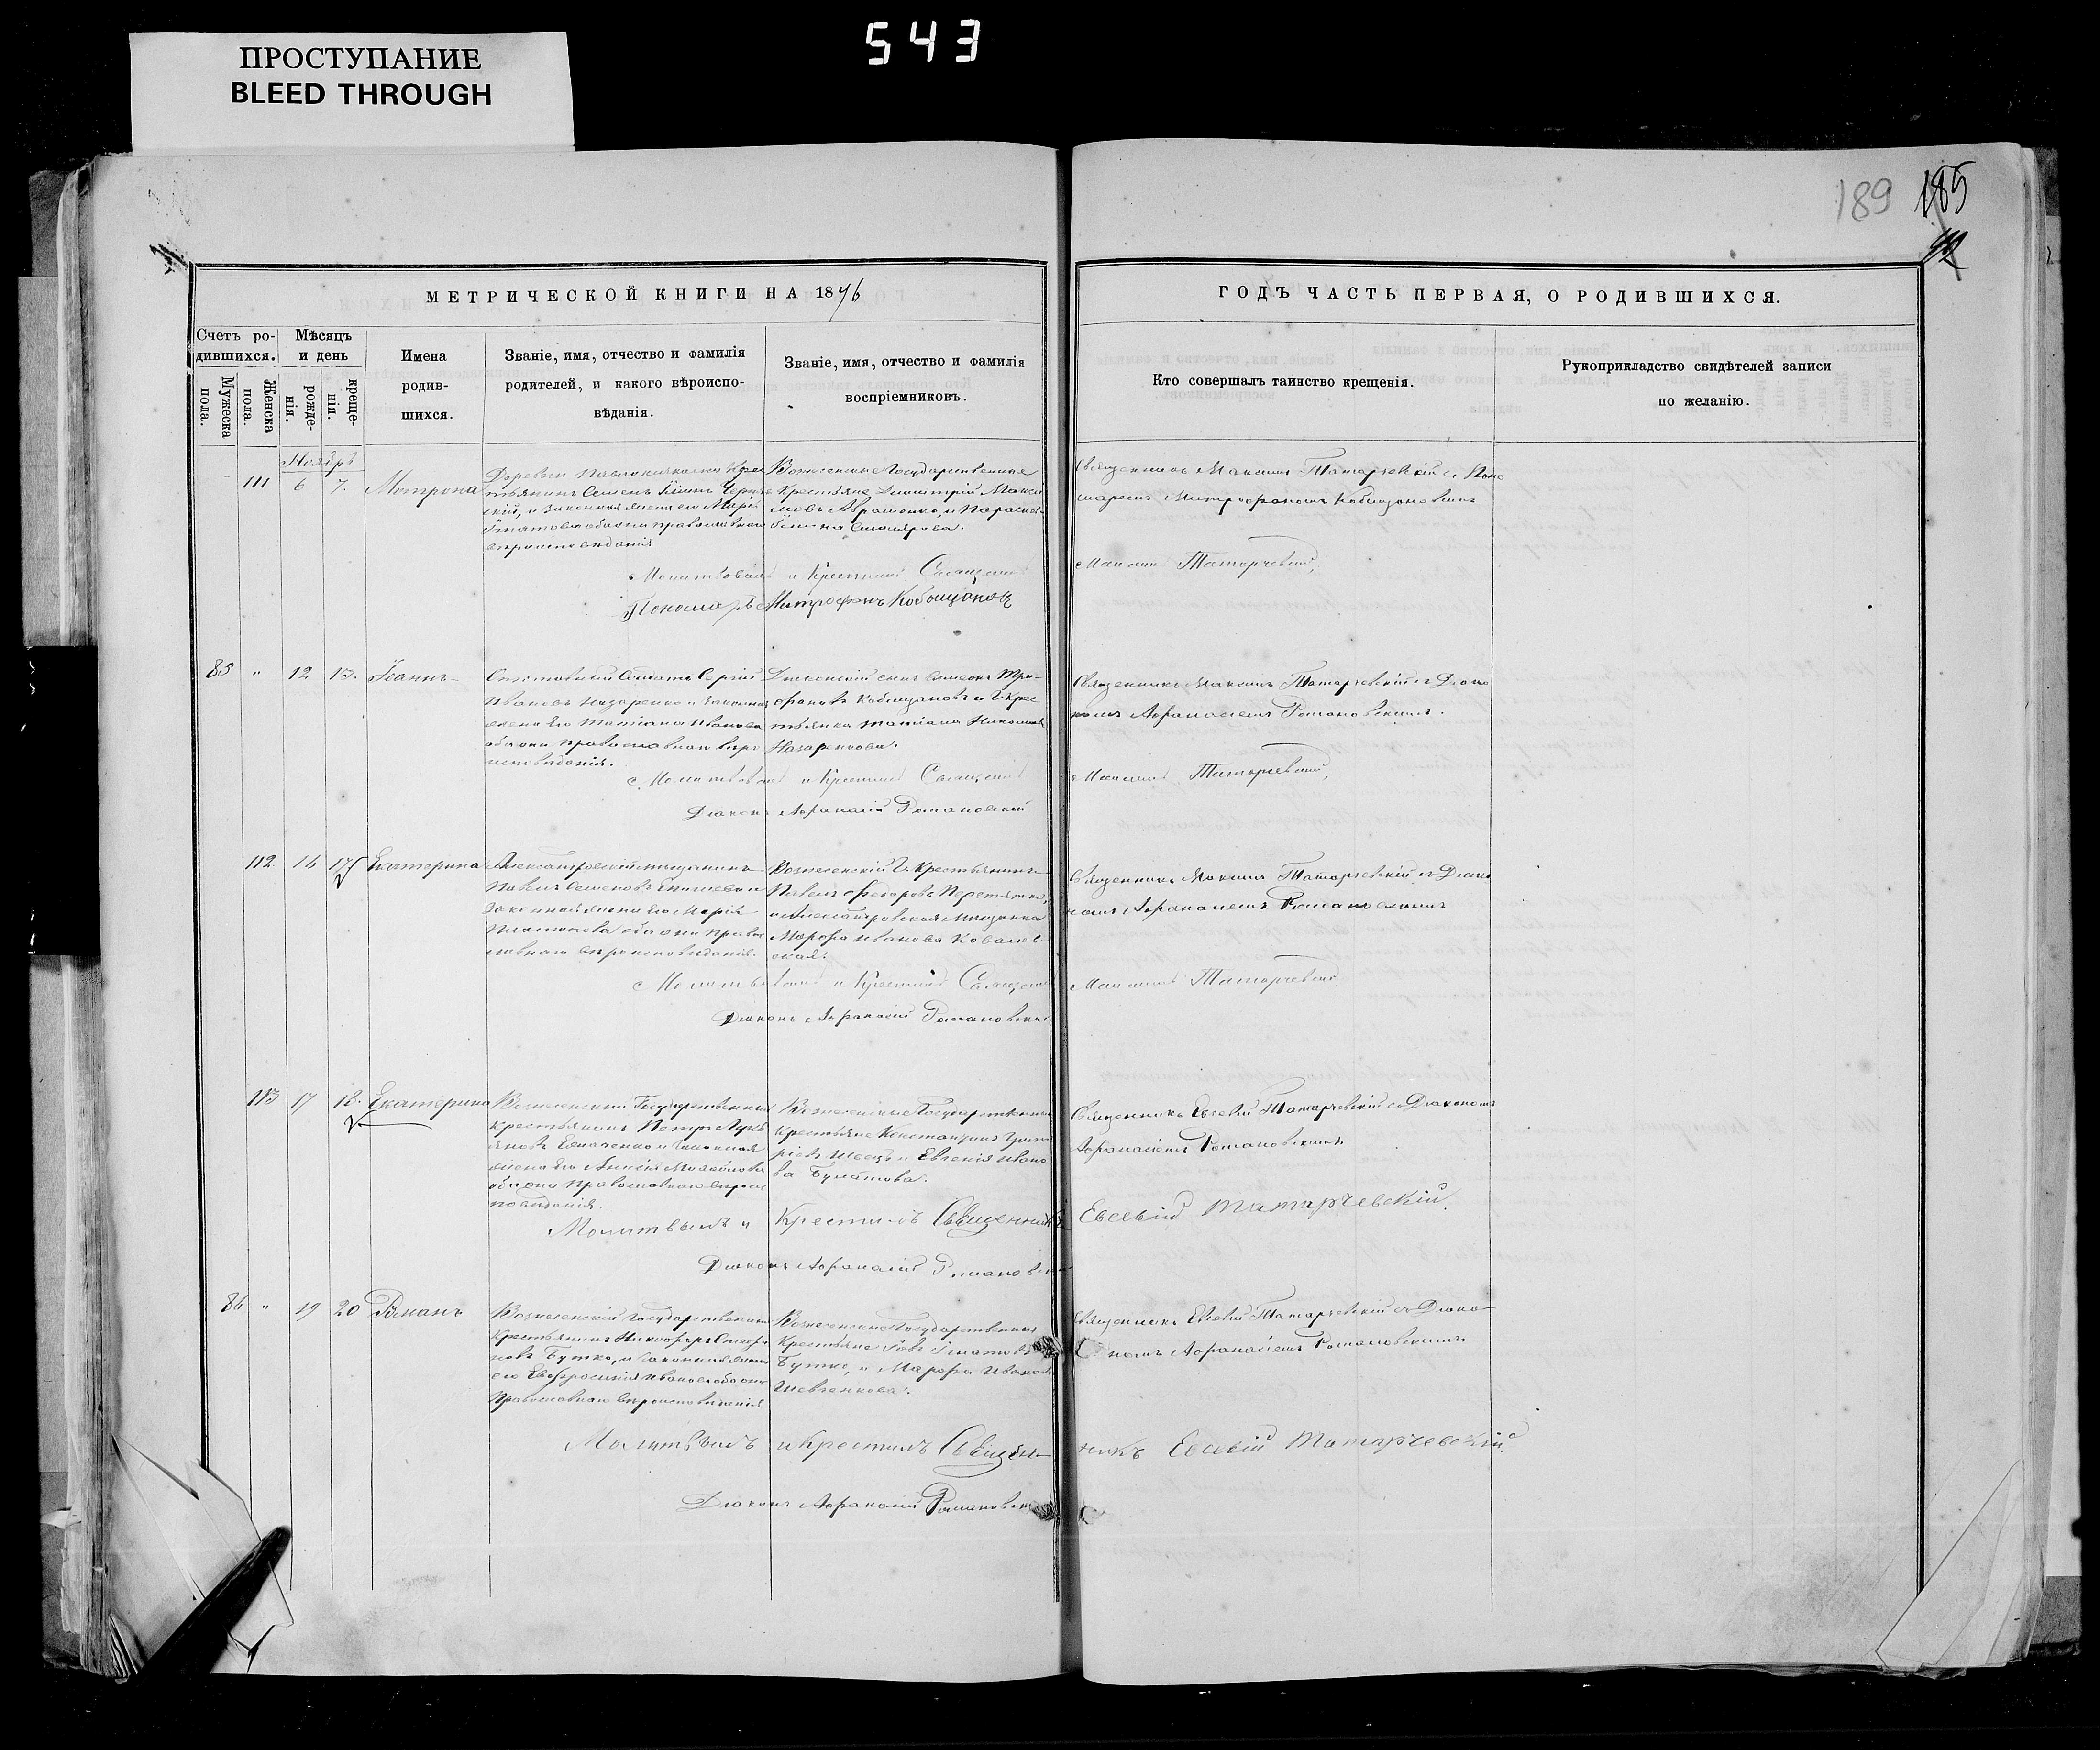 543
ПРОСТУПАНИЕ
BLEED THROUGH
189 185
МЕТРИЧЕСКОЙ КНИГИ НА 1876
ГОДЪ ЧАСТЬ ПЕРВАЯ, О РОДИВШИХСЯ.
Счетъ ро-
дившихся.
Мужеска
пола.
Женска
пола.
Мѣсяцъ
и день
рожде-
нія.
креще-
нія.
Имена
родив-
шихся.
Званіе, имя, отчество и фамилія
родителей, и какого вѣроиспо-
вѣданія.
Званіе, имя, отчество и фамилія
воспріемниковъ.
Кто совершалъ таинство крещенія.
Рукоприкладство свидѣтелей записи
по желанію.
Ноябрь
111 6 7. Мотрона
Деревни Крес
тьянинъ Семенъ
скій, и законная жена его Марія
Игнатова оба они православнаго
вѣроисповѣданія
Вознесенскіе Государственные
Крестьяне Димитрій Макси
мовъ Авраменко, и Параскева
Священникъ Максимъ Татарчевскій съ Поно
маремъ Митрофаномъ Кобищановымъ
Молитвовалъ и Крестилъ Священникъ Максимъ Татарчевскій,
Пономарь Митрофанъ Кобищановъ
85 " 12 13. Іоаннъ
Солдатъ Сергій
Ивановъ Назаренко и законная
жена его Татіана Иванова
оба они православнаго вѣро
исповѣданія.
Дьяконскій сынъ Симеонъ Тро-
фановъ Кобищановъ и Г. Крес
тьянка Татіана Никитова
Назаренкова.
Священникъ Максимъ Татарчевскій съ Діако
номъ Афанасіемъ Романовскимъ.
Молитвовалъ и Крестилъ Священникъ Максимъ Татарчевскій,
Діаконъ Афанасій Романовскій
112. 16 17 Екатерина
Александровскій мѣщанинъ
Павелъ Семеновъ и
законная жена его Марія
Платонова оба они право
славнаго вѣроисповѣданія.
Вознесенскій Г. Крестьянинъ
Павелъ Федоровъ Перетятко,
и Александровская Мѣщанка
Марфа Иванова Ковалев-
ская.
Священникъ Максимъ Татарчевскій съ Діако
номъ Афанасіемъ Романовскимъ
Молитвовалъ и Крестилъ Священникъ Максимъ Татарчевскій
Діаконъ Афанасій Романовскій
113 17 18. Екатерина
Вознесенскій Государственный
Крестьянинъ Петръ Лукь
яновъ и законная
жена его Анисія Михайлова
оба они православнаго вѣроис
повѣданія.
Вознесенскіе Государственные
Крестьяне Константинъ Григо
ріевъ Швецъ и Евгенія Ивано
ва Булатова.
Священникъ Евсевій Татарчевскій съ Діакономъ
Афанасіемъ Романовскимъ
Молитвывалъ и Крестилъ Священникъ Евсевій Татарчевскій.
Діаконъ Афанасій Романовскій
86 " 19 20 Романъ
Вознесенскій Государственный
Крестьянинъ Никифоръ
новъ Бутко, и законная жена
его Евфросинія Иванова оба они
Православнаго вѣроисповѣданія
Вознесенскіе Государственные
Крестьяне Іовъ Игнатовъ
Бутко, и Марфа Иванова
Шевченкова.
Священникъ Евсевій Татарчевскій съ Діако-
номъ Афанасіемъ Романовскимъ
Молитвывалъ и Крестилъ Священникъ Евсевій Татарчевскій.
Діаконъ Афанасій Романовскій